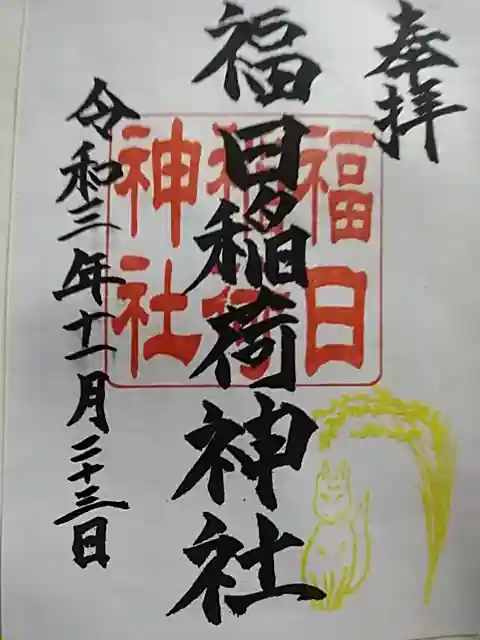 奉拝
福日稲荷神社
令和三年十一月二十三日
福日
稲荷
神社